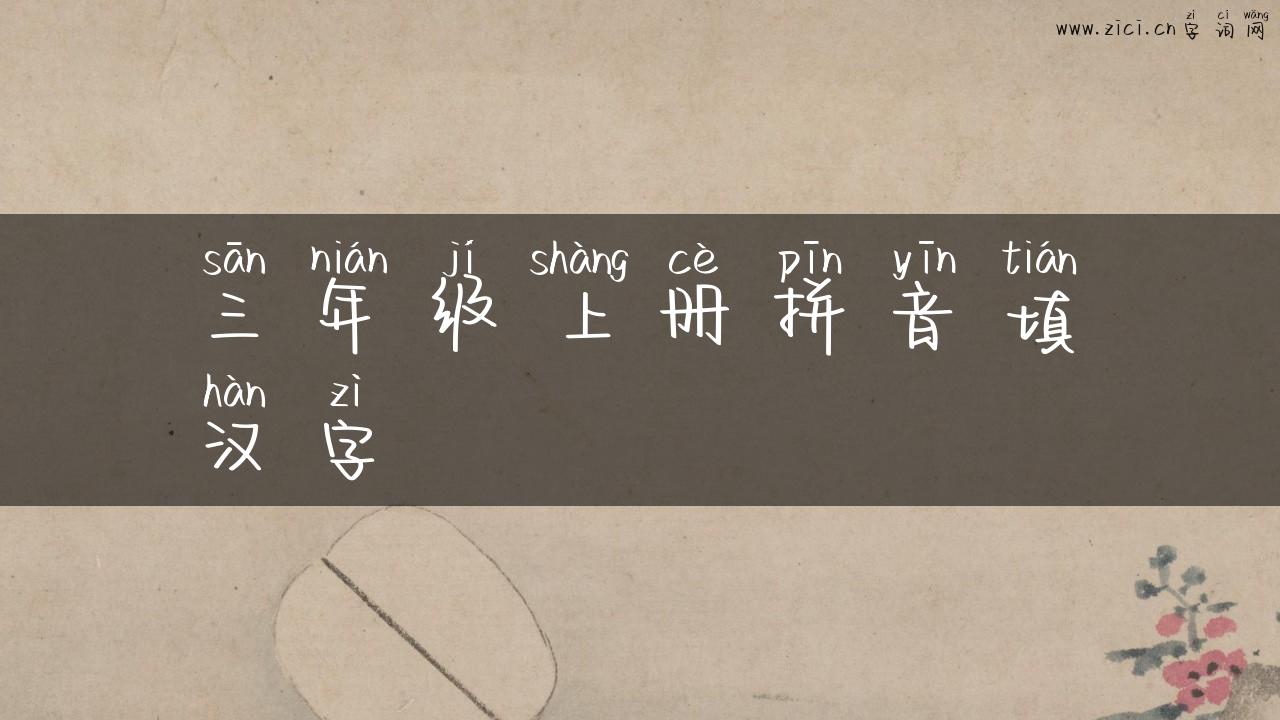 zì cí wǎng
www.zici.cn字词网
sān nián jí shàng cè pīn yīn tián
三年级上册拼音填
hàn zì
汉字